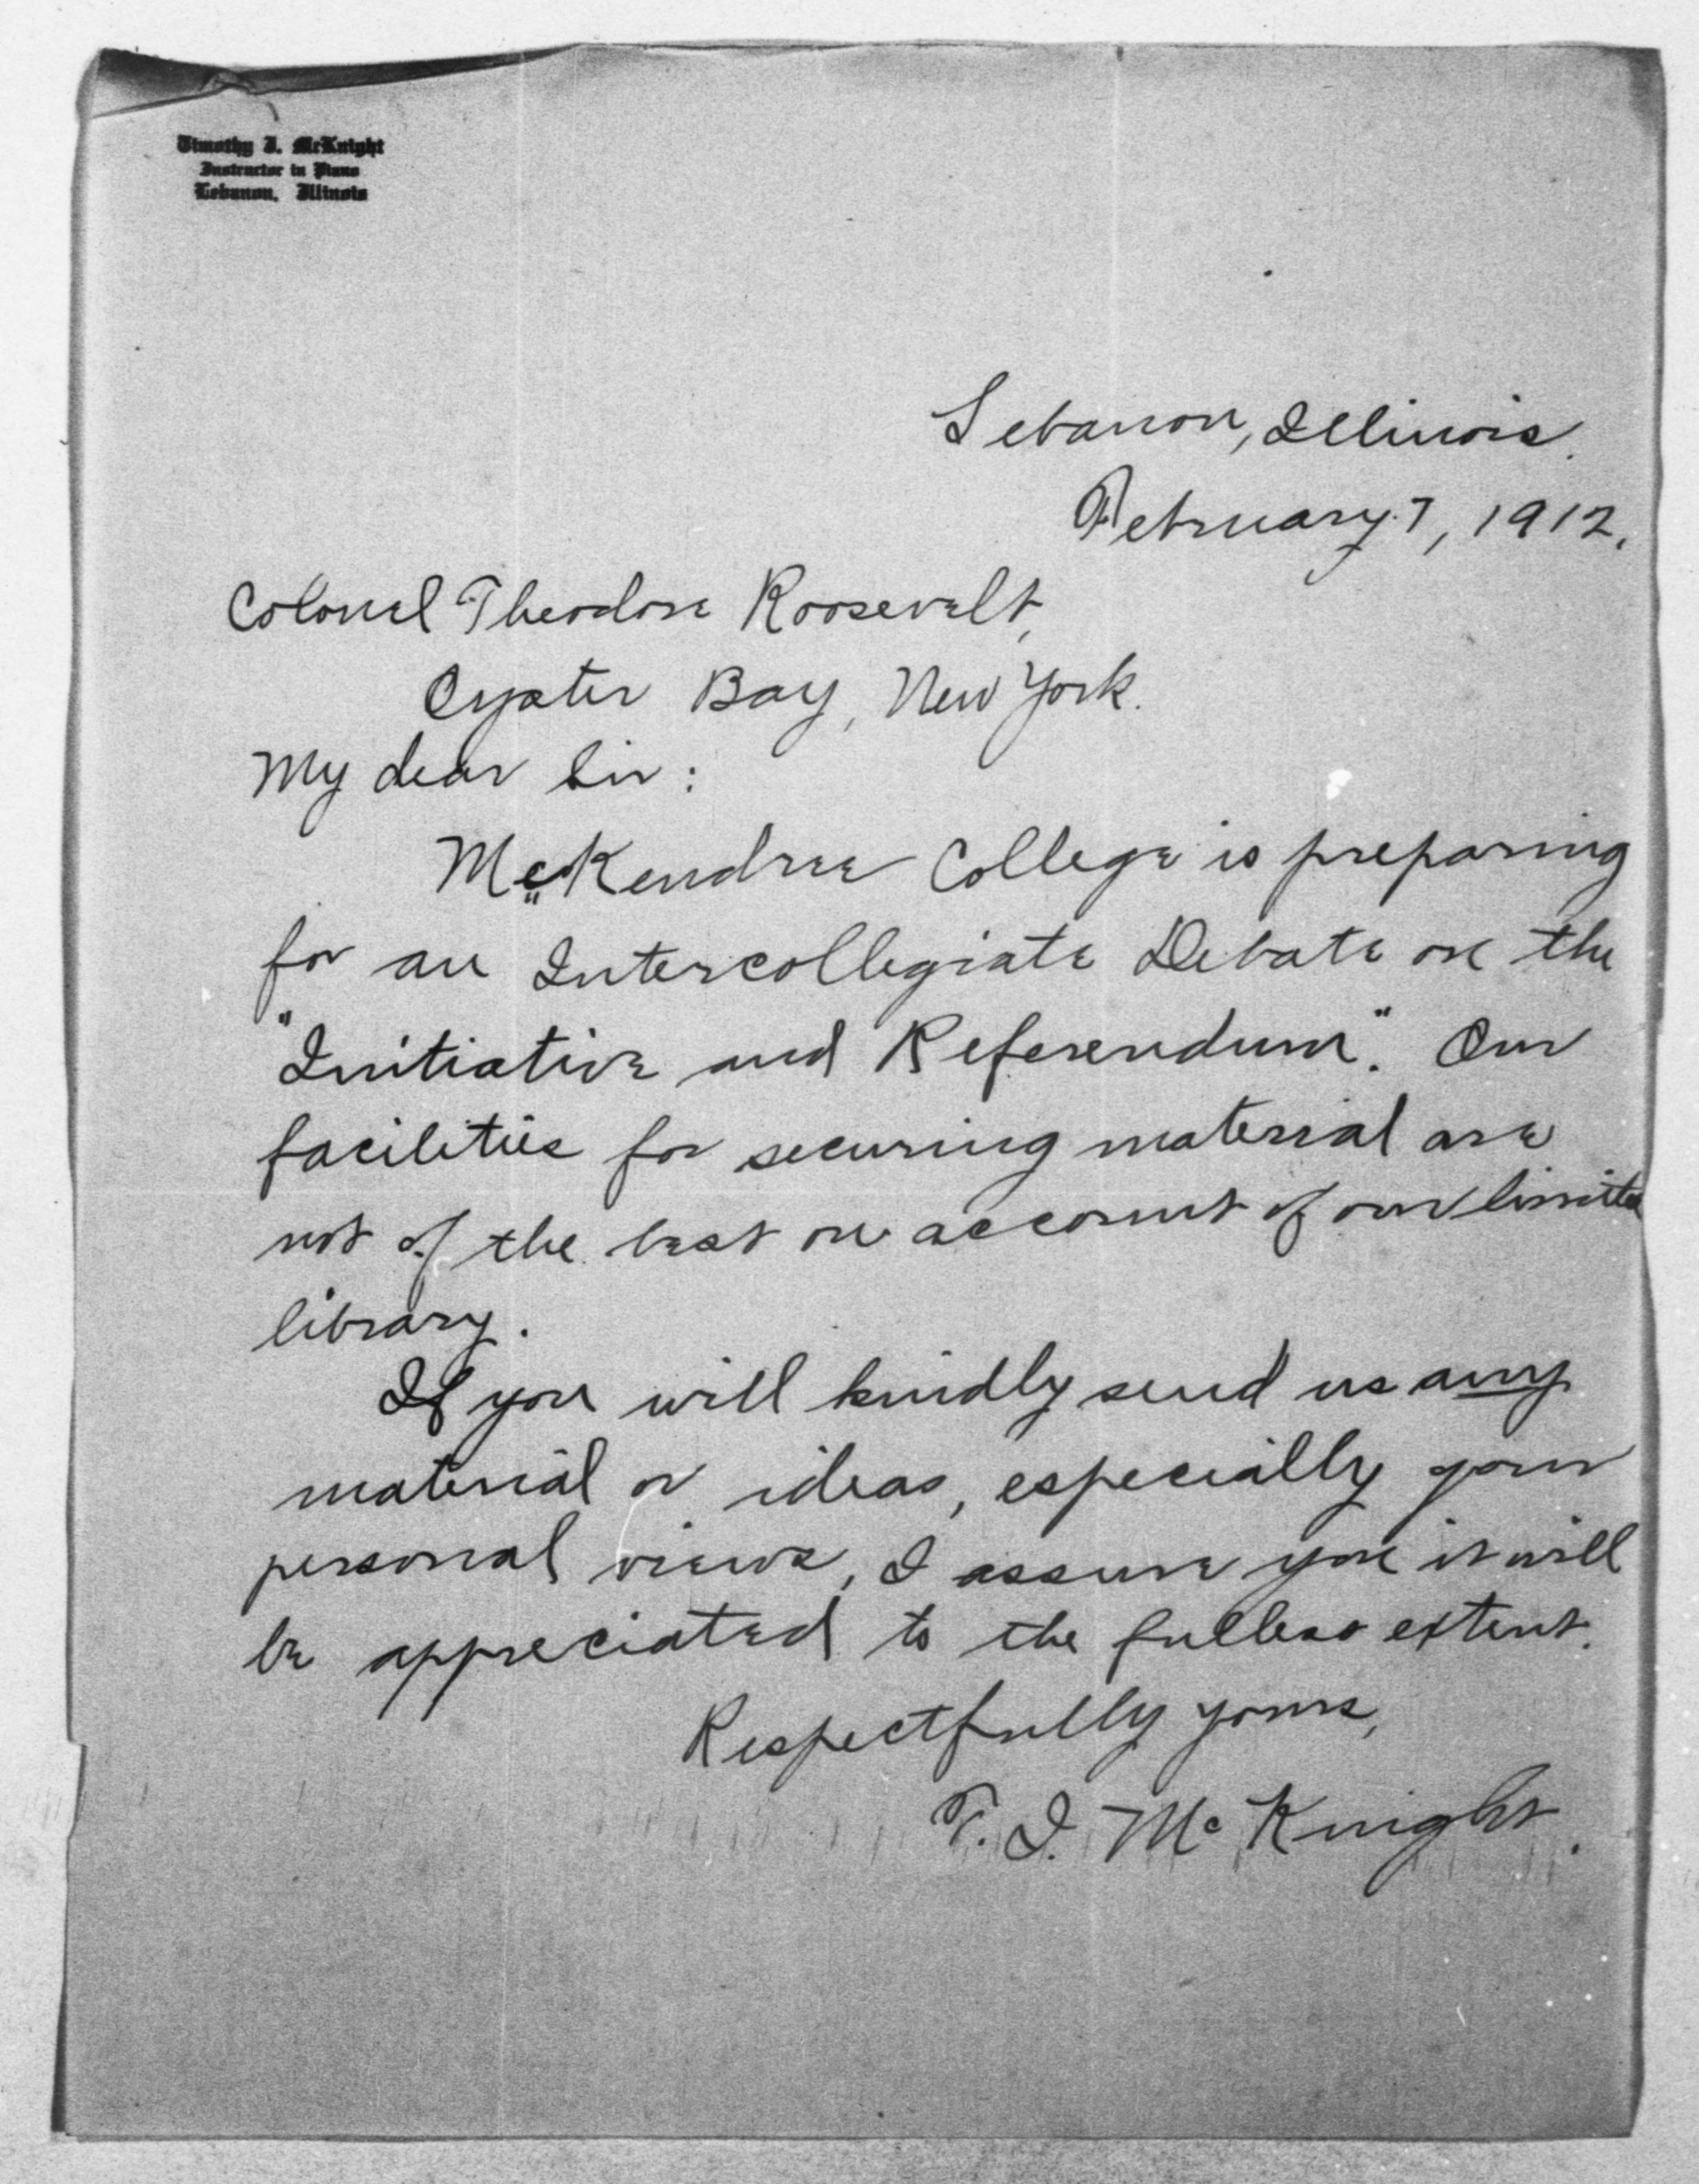 Timothy I. McKnight
Instructor in Piano
Lebanon, Illinois
Lebanon, Illinois.
February 7, 1912.
Colonel Theodore Roosevelt,
Oyster Bay, New York.
My dear Sir:
McKendree College is preparing
for an Intercollegiate Debate on the
"Initiative and Referendum". Our
facilities for securing material are
not of the best on account of our limited
library.
If you will kindly send us any
material or ideas, especially your
personal views, I assure you it will
be appreciated to the fullest extent.
Respectfully yours,
T. I. McKnight.